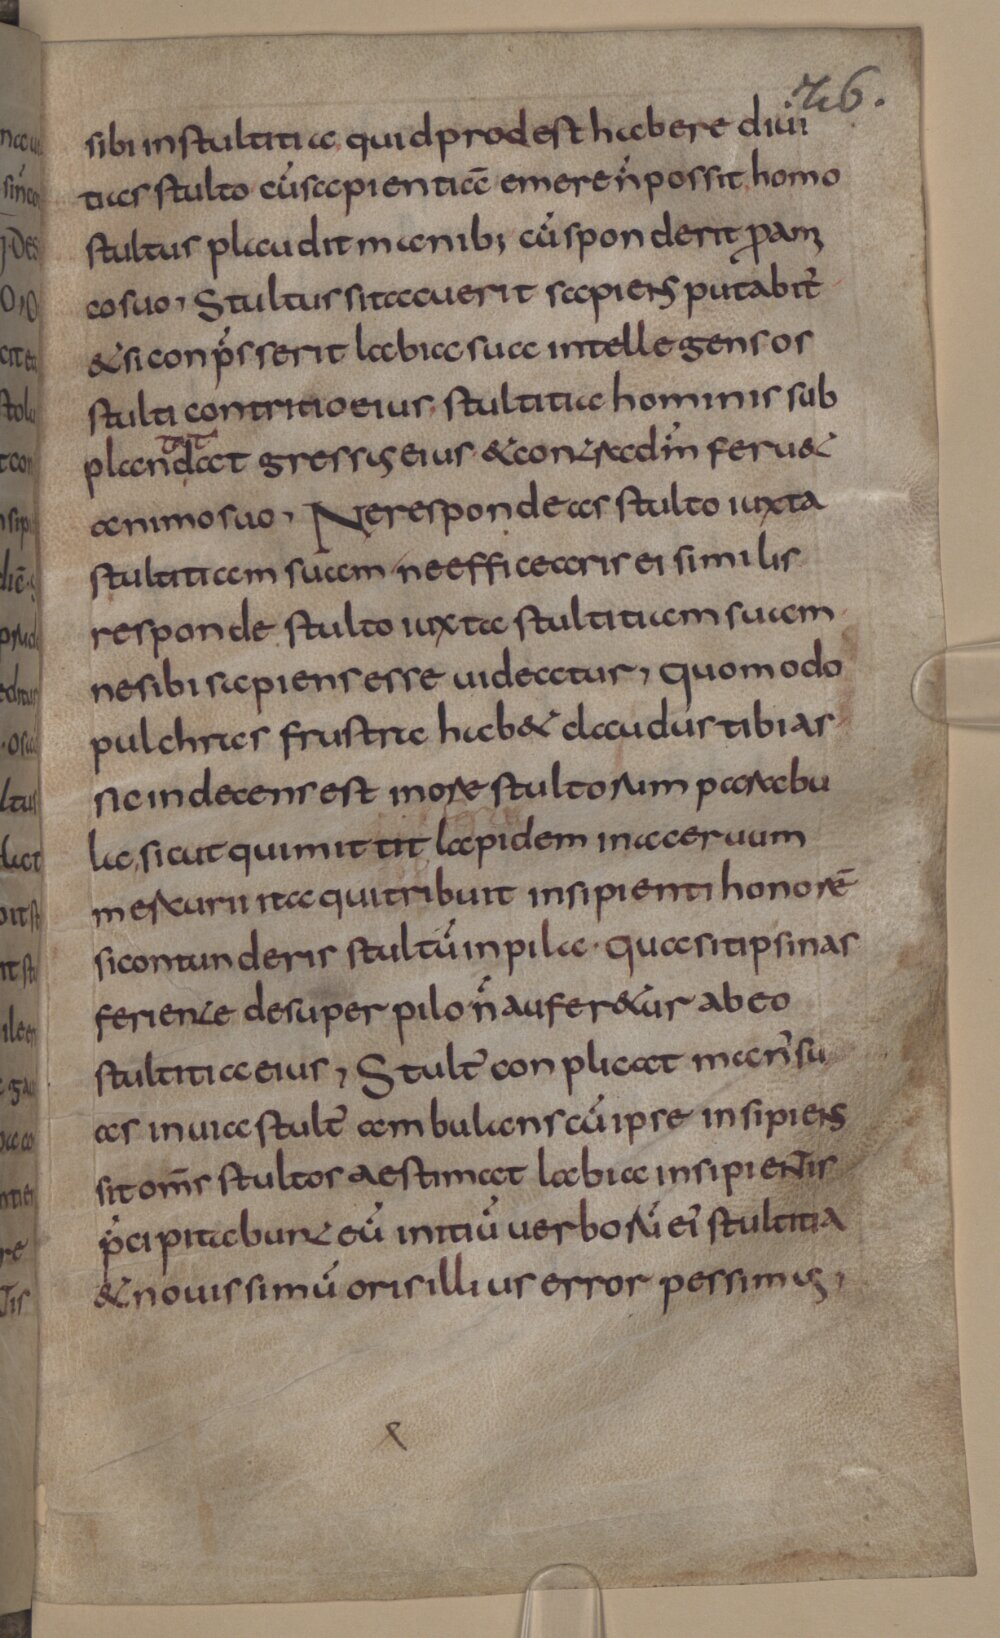 76.
sibi in stultitia quid prodest habere diui
tias stulto cū sapientiā emere n̄ possit homo
stultus plaudit manib; cū sponderit p̄ ami
co suo, Stultus si tacuerit sapiens putabit̄
& si conp̄sserit labia sua intellegens os
stulti contritio eius stultitia hominis sub
plandat gressus eius & contra dm̄ feru&
tat
animo suo, Ne respondeas stulto iuxta
stultitiam suam ne efficearis ei similis
responde stulto iuxta stultitiam suam
ne sibi sapiens esse uideatur, quomodo
pulchras frustra hab& claudus tibias
sic indecens est in ore stultorum parabu
la, sicut qui mittit lapidem in aceruum
mercurii ita qui tribuit insipienti honorē
si contunderis stultū in pila quasi tipsinas
feriente desuper pilo n̄ aufer&ur ab eo
stultitia eius, Stult̄ conplicat man̄ su
as in uia stult̄ ambulans cū ipse insipiens
sit om̄s stultos aestimat labia insipientis
p̄cipitabunt eū initiū uerborū ei᷒ stultitia
& nouissimū oris illius error pessimus,